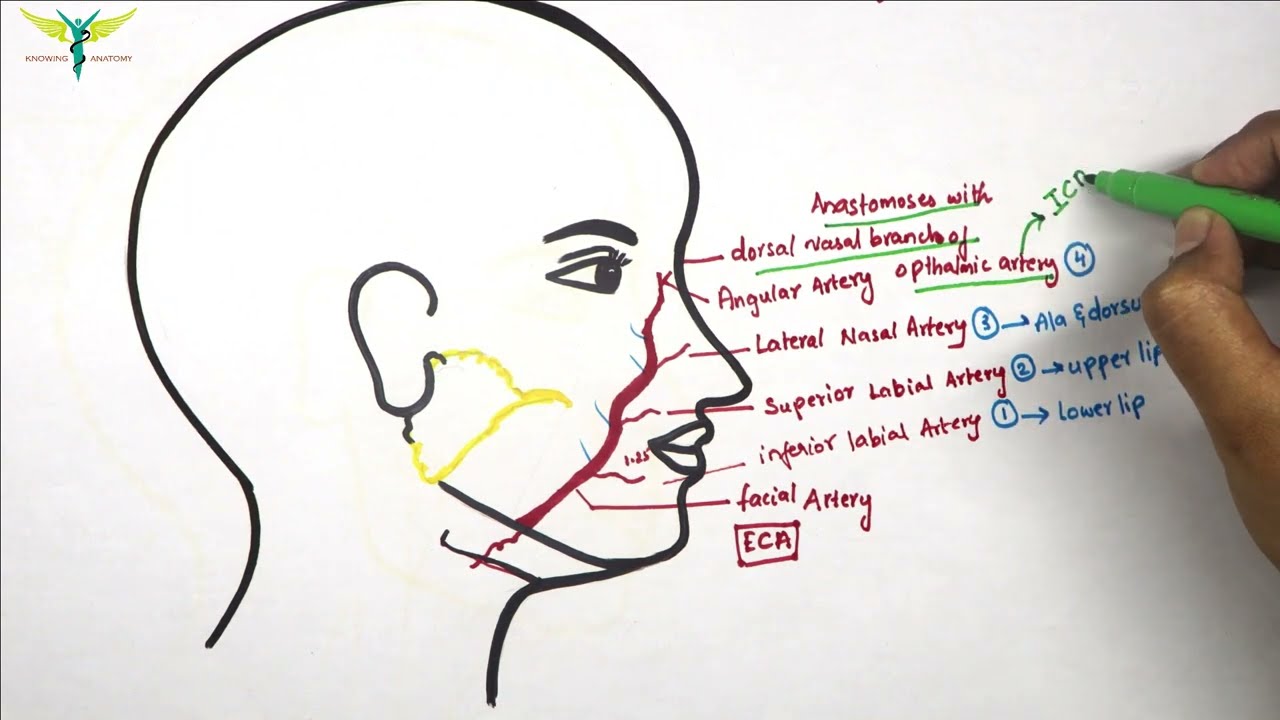 KNOWING ANATOMY
Anastomoses with
dorsal Nasal branch of
Angular Artery opthalmic artery 4
IC
Lateral Nasal Artery 3 → Ala & dorsu
Superior Labial Artery 2 → upper lip
inferior labial Artery 1 → Lower lip
1.25
facial Artery
ECA